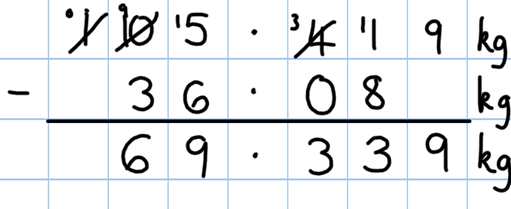 105.419 kg
- 36.08 kg
69.339 kg